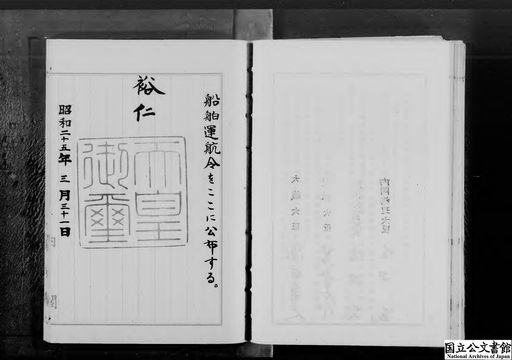 船舶運航令をここに公布する。
裕仁
天皇
御璽
昭和二十五年三月三十一日
内閣総理大臣
大蔵大臣
国立公文書館
National Archives of Japan